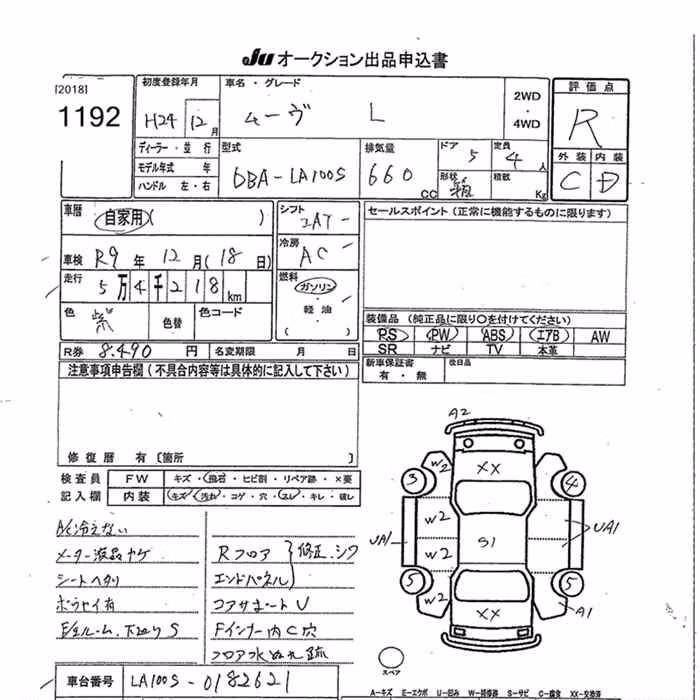 JU オークション出品申込書
[2018]
1192
初度登録年月
H24 12月
車名・グレード
ムーヴ L
2WD
・
4WD
評価点
R
外装 内装
C D
ディーラー・並行
モデル年式 年
ハンドル 左・右
型式
DBA-LA100S
排気量
660 CC
ドア
5
定員
4人
形状
箱
積載
Kg
車歴
自家用( )
車検 R9年 12月(18日)
走行
5万4千218km
色 紫
色替
色コード
シフト
IAT
冷房
AC
燃料
ガソリン
・
軽油
( )
セールスポイント(正常に機能するものに限ります)
装備品(純正品に限り○を付けてください)
PS PW ABS エアB AW
SR ナビ TV 本革
新車保証書
有・無
後日品
R券 8,490円 名変期限 月 日
注意事項申告欄(不具合内容等は具体的に記入して下さい)
修復歴 有〔箇所
検査員
記入欄
FW キズ・飛石・ヒビ割・リペア跡・×要
内装 キズ・汚れ・コゲ・穴・スレ・キレ・破レ
A/C冷えない
メーター液晶ヤケ
シートヘタリ
ボウセイ有
E/gルーム、下廻りS
Rフロア
エンドパネル
修正、シワ
コアサポートU
Fインナー内C穴
フロア水ぬれ跡
A2
W2
XX
3
4
W2
S1
UA1
UA1
W2
5
5
W2
XX
A1
スペア
車台番号 LA100S-0182621
A−キズ E−エクボ U−凹み W−補修跡 S−サビ C−腐食 XX−交換済